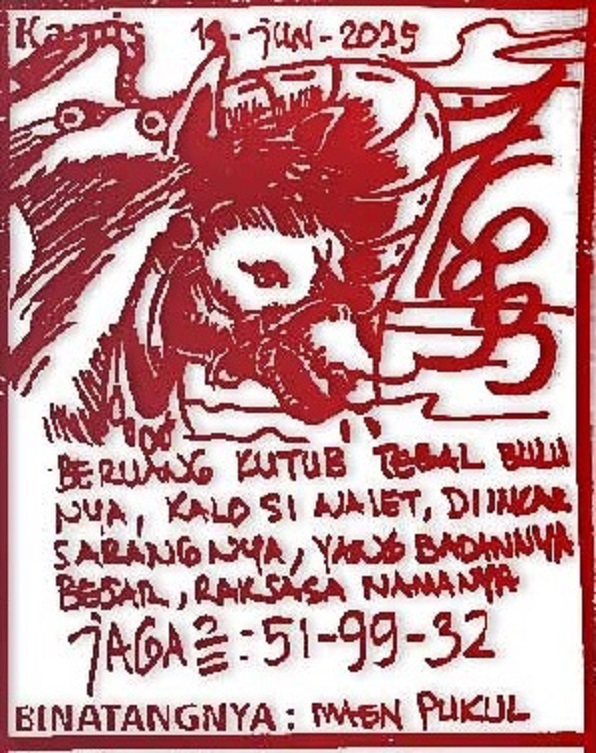 Kamis 19-JUN-2025
BERUANG KUTUB TEBAL BULU
NYA, KALO SI WALET, DIINCAR
SARANGNYA, YANG BADANNYA
BESAR, RAKSASA NAMANYA
JAGA2 : 51-99-32
BINATANGNYA : MAEN PUKUL